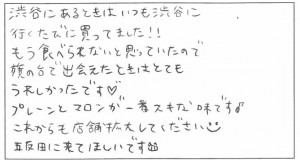 渋谷にあるときはいつも渋谷に
行くたびに買ってました!!
もう食べられないと思っていたので
旗の台で出会えたときはとても
うれしかったです♡
プレーンとマロンが一番スキな味です♪
これからも店舗拡大してください☺
五反田に来てほしいです